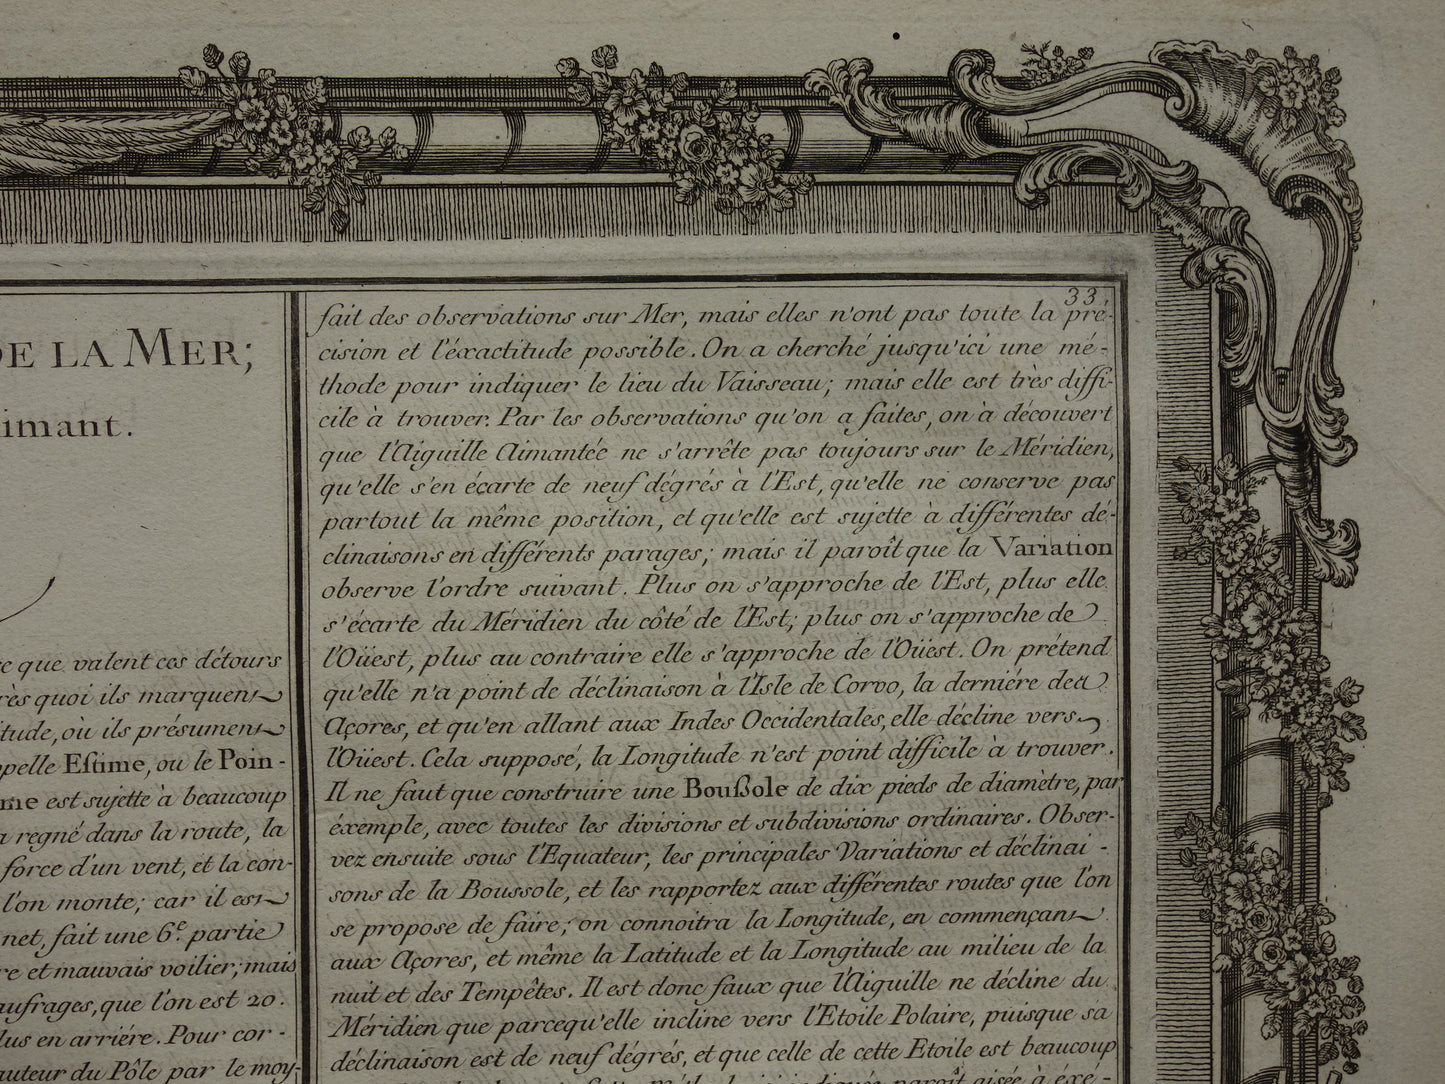 DE LA MER;
imant.
ce que valent ces détours
rès quoi ils marquent
itude, où ils présument
ppelle Estime, ou le Poin-
me est sujette à beaucoup
a regné dans la route, la
force d'un vent, et la con-
l'on monte; car il est
net, fait une 6.e partie
re et mauvais voilier; mais
aufrages, que l'on est 20.
lus en arriére. Pour cor-
auteur du Pôle par le moy-
33.
fait des observations sur Mer, mais elles n'ont pas toute la pré-
cision et l'éxactitude possible. On a cherché jusqu'ici une mé-
thode pour indiquer le lieu du Vaisseau; mais elle est très diffi-
cile à trouver. Par les observations qu'on a faites, on à découvert
que l'Aiguille Aimantée ne s'arrête pas toujours sur le Méridien,
qu'elle s'en écarte de neuf dégrés à l'Est, qu'elle ne conserve pas
partout la même position, et qu'elle est sujette à différentes dé-
clinaisons en différents parages; mais il paroît que la Variation
observe l'ordre suivant. Plus on s'approche de l'Est, plus elle
s'écarte du Méridien du côté de l'Est; plus on s'approche de
l'Oüest, plus au contraire elle s'approche de l'Oüest. On prétend
qu'elle n'a point de déclinaison à l'Isle de Corvo, la derniére des
Açores, et qu'en allant aux Indes Occidentales, elle décline vers
l'Oüest. Cela supposé, la Longitude n'est point difficile à trouver.
Il ne faut que construire une Boußole de dix pieds de diamètre, par
éxemple, avec toutes les divisions et subdivisions ordinaires. Obser-
vez ensuite sous l'Equateur, les principales Variations et déclinai-
sons de la Boussole, et les rapportez aux différentes routes que l'on
se propose de faire; on connoitra la Longitude, en commençant
aux Açores, et même la Latitude et la Longitude au milieu de la
nuit et des Tempêtes. Il est donc faux que l'Aiguille ne décline du
Méridien que parcequ'elle incline vers l'Etoile Polaire, puisque sa
déclinaison est de neuf dégrés, et que celle de cette Etoile est beaucoup
paroît aisée à éxé-